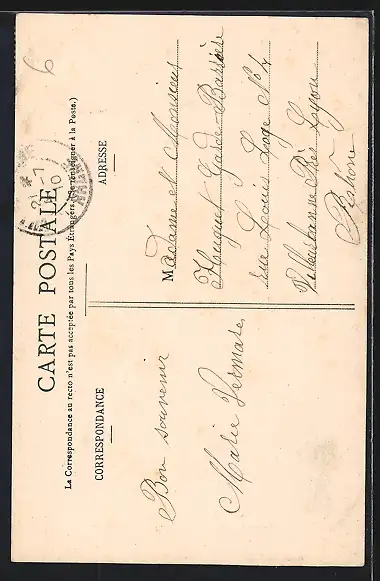 CARTE POSTALE
La Correspondance au recto n'est pas acceptée par tous les Pays Étrangers. (Se renseigner à la Poste.)
CORRESPONDANCE
Bon souvenir
Marie
ADRESSE
Madame et Monsieur
Garde-Barrière
rue Louis Loge N° 7
Villeurbanne Près Lyon
Rhône
6